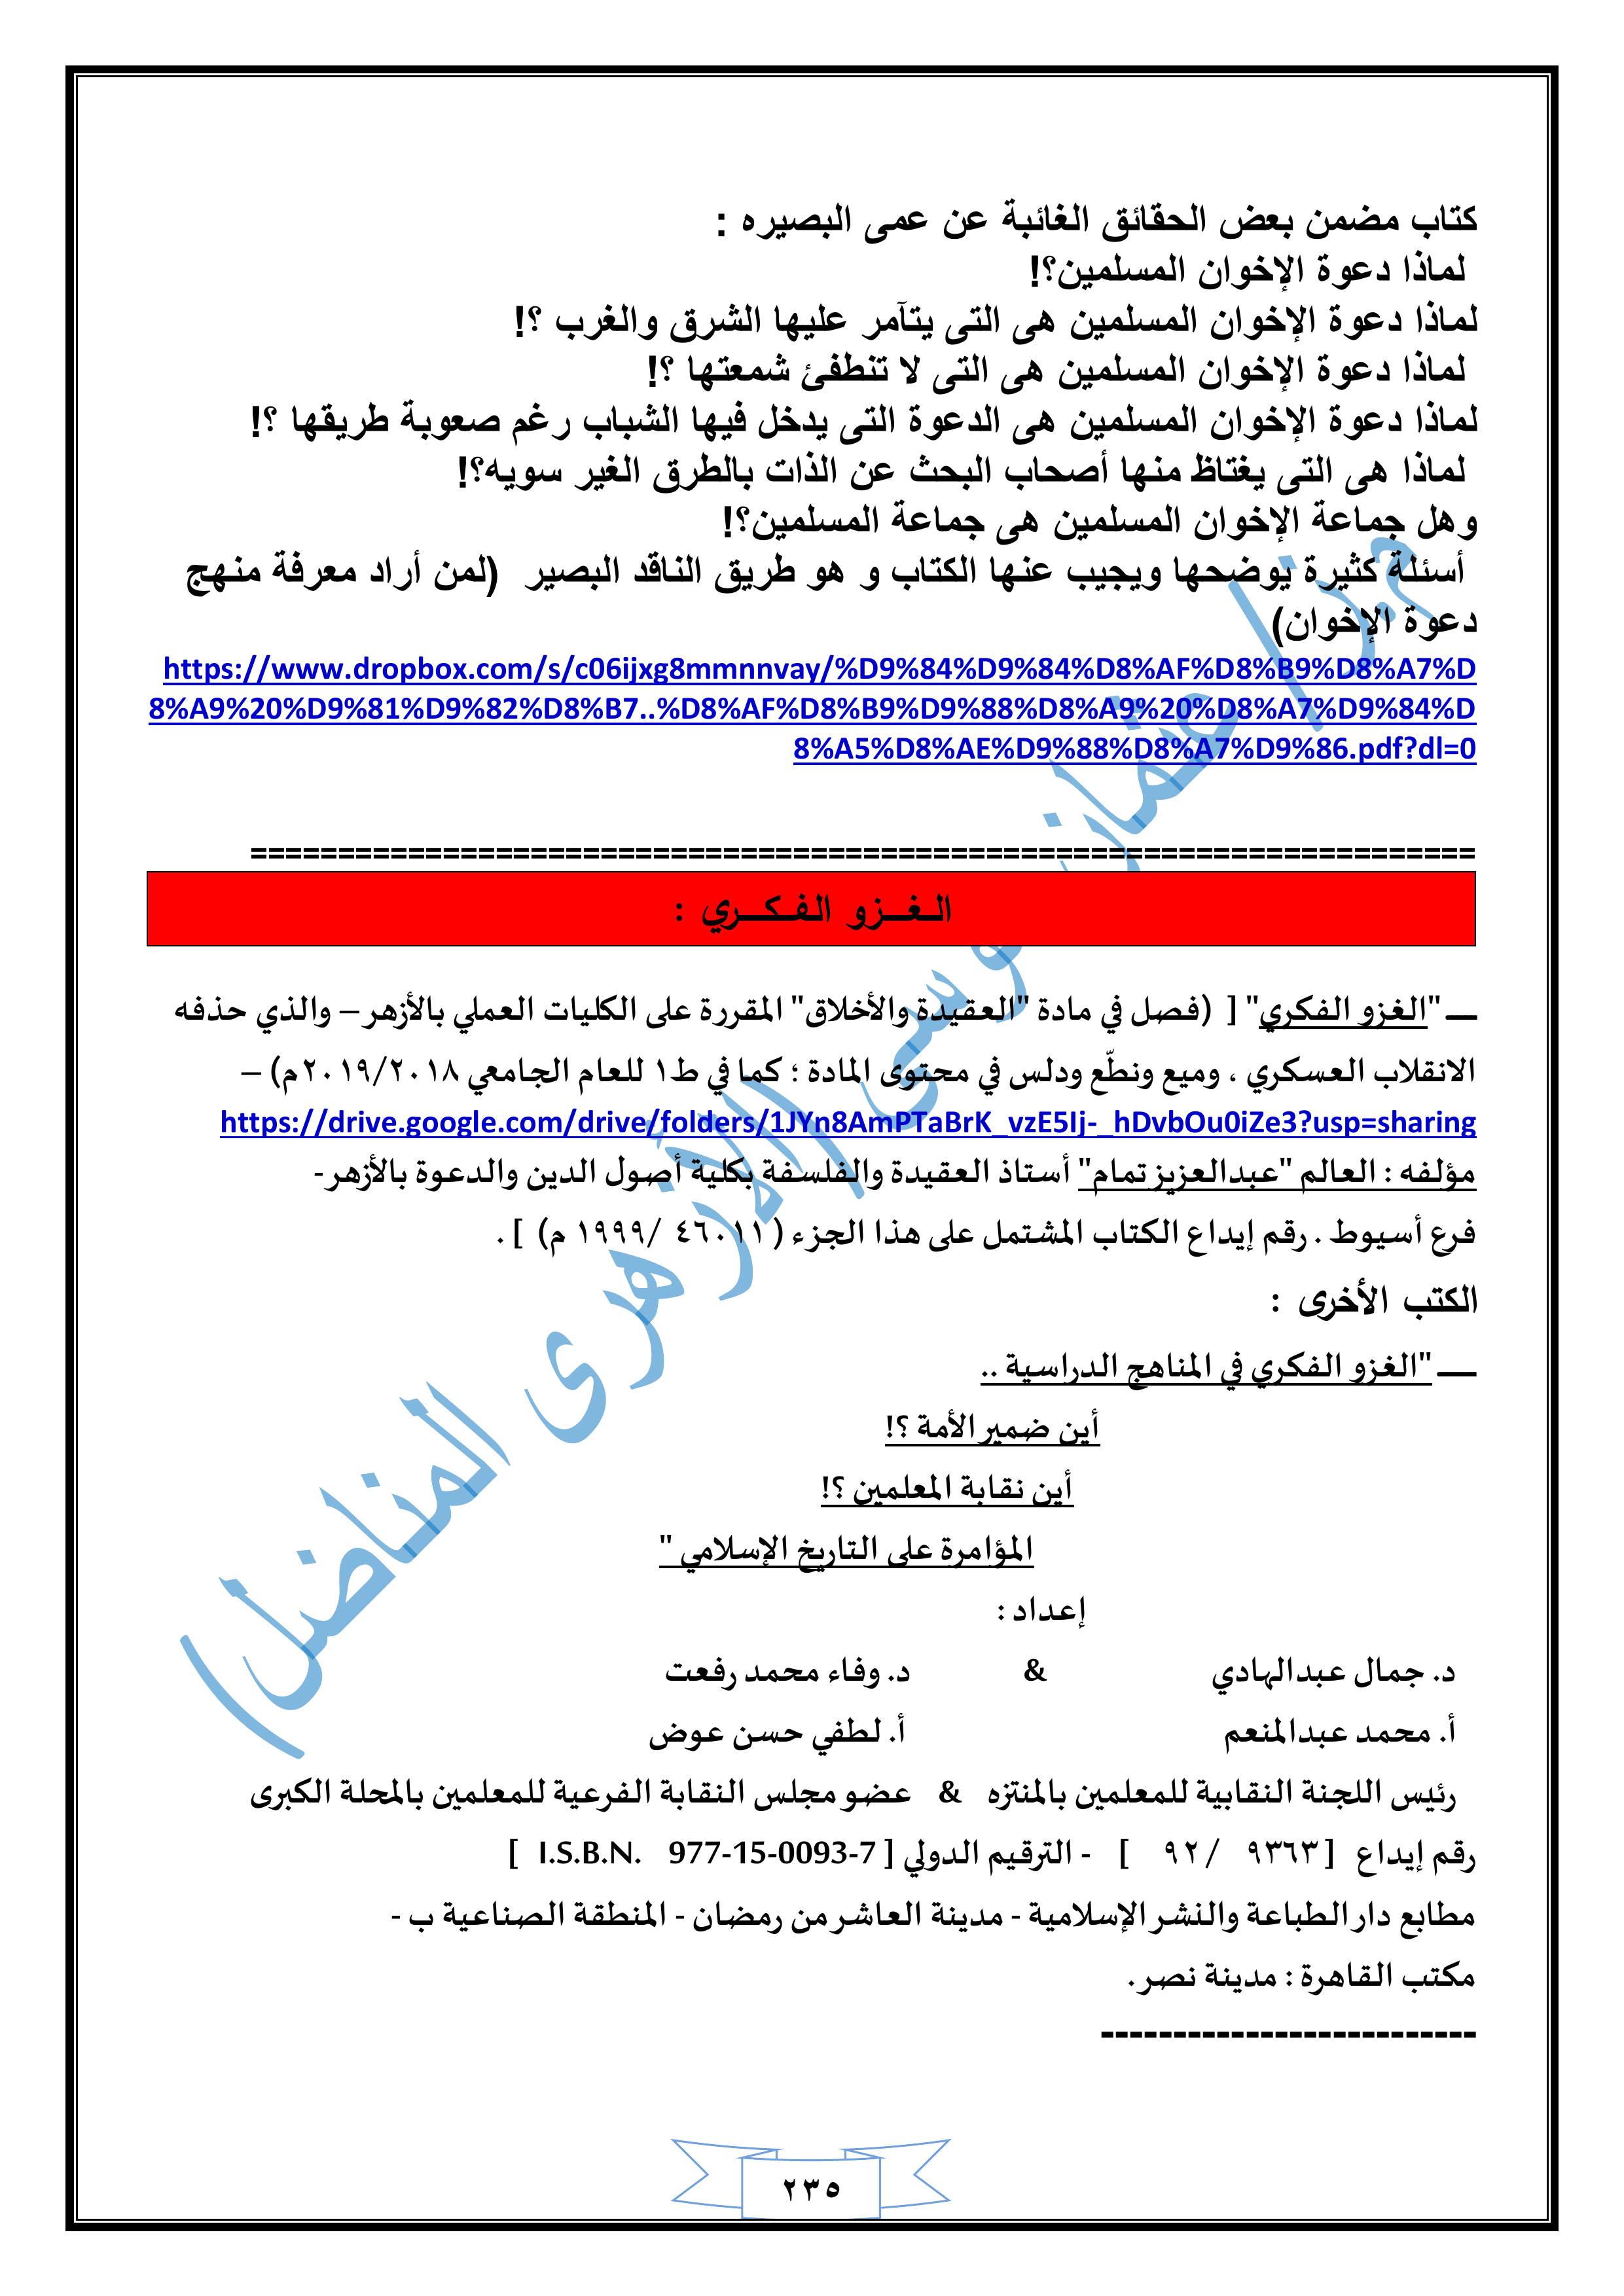 كتاب مضمن بعض الحقائق الغائبة عن عمى البصيره :
لماذا دعوة الإخوان المسلمين؟!
لماذا دعوة الإخوان المسلمين هى التى يتآمر عليها الشرق والغرب ؟!
لماذا دعوة الإخوان المسلمين هى التى لا تنطفئ شمعتها ؟!
لماذا دعوة الإخوان المسلمين هى الدعوة التى يدخل فيها الشباب رغم صعوبة طريقها ؟!
لماذا هى التى يغتاظ منها أصحاب البحث عن الذات بالطرق الغير سويه؟!
وهل جماعة الإخوان المسلمين هى جماعة المسلمين؟!
أسئلة كثيرة يوضحها ويجيب عنها الكتاب و هو طريق الناقد البصير (لمن أراد معرفة منهج
دعوة الإخوان)
https://www.dropbox.com/s/c06ijxg8mmnnvay/%D9%84%D9%84%D8%AF%D8%B9%D8%A7%D
8%A9%20%D9%81%D9%82%D8%B7..%D8%AF%D8%B9%D9%88%D8%A9%20%D8%A7%D9%84%D
8%A5%D8%AE%D9%88%D8%A7%D9%86.pdf?dl=0
====================================================================
الـغـــزو الـفـكـــري :
ـــ "الغزو الفكري" [ (فصل في مادة "العقيدة والأخلاق" المقررة على الكليات العملي بالأزهر – والذي حذفه
الانقلاب العسكري ، وميع ونطّع ودلس في محتوى المادة ؛ كما في ط١ للعام الجامعي ٢٠١٩/٢٠١٨م) –
https://drive.google.com/drive/folders/1JYn8AmPTaBrK_vzE5Ij-_hDvbOu0iZe3?usp=sharing
مؤلفه : العالم "عبدالعزيز تمام" أستاذ العقيدة والفلسفة بكلية أصول الدين والدعوة بالأزهر-
فرع أسيوط . رقم إيداع الكتاب المشتمل على هذا الجزء ( ٤٦٠١١ /١٩٩٩ م) ] .
الكتب الأخرى :
ـــ "الغزو الفكري في المناهج الدراسية ..
أين ضمير الأمة ؟!
أين نقابة المعلمين ؟!
المؤامرة على التاريخ الإسلامي "
إعداد :
د. جمال عبدالهادي & د. وفاء محمد رفعت
أ. محمد عبدالمنعم أ. لطفي حسن عوض
رئيس اللجنة النقابية للمعلمين بالمنتزه & عضو مجلس النقابة الفرعية للمعلمين بالمحلة الكبرى
رقم إيداع [ ٩٣٦٣ / ٩٢ ] - الترقيم الدولي [ I.S.B.N. 977-15-0093-7 ]
مطابع دار الطباعة والنشر الإسلامية - مدينة العاشر من رمضان - المنطقة الصناعية ب -
مكتب القاهرة : مدينة نصر .
--------------------------
٢٣٥